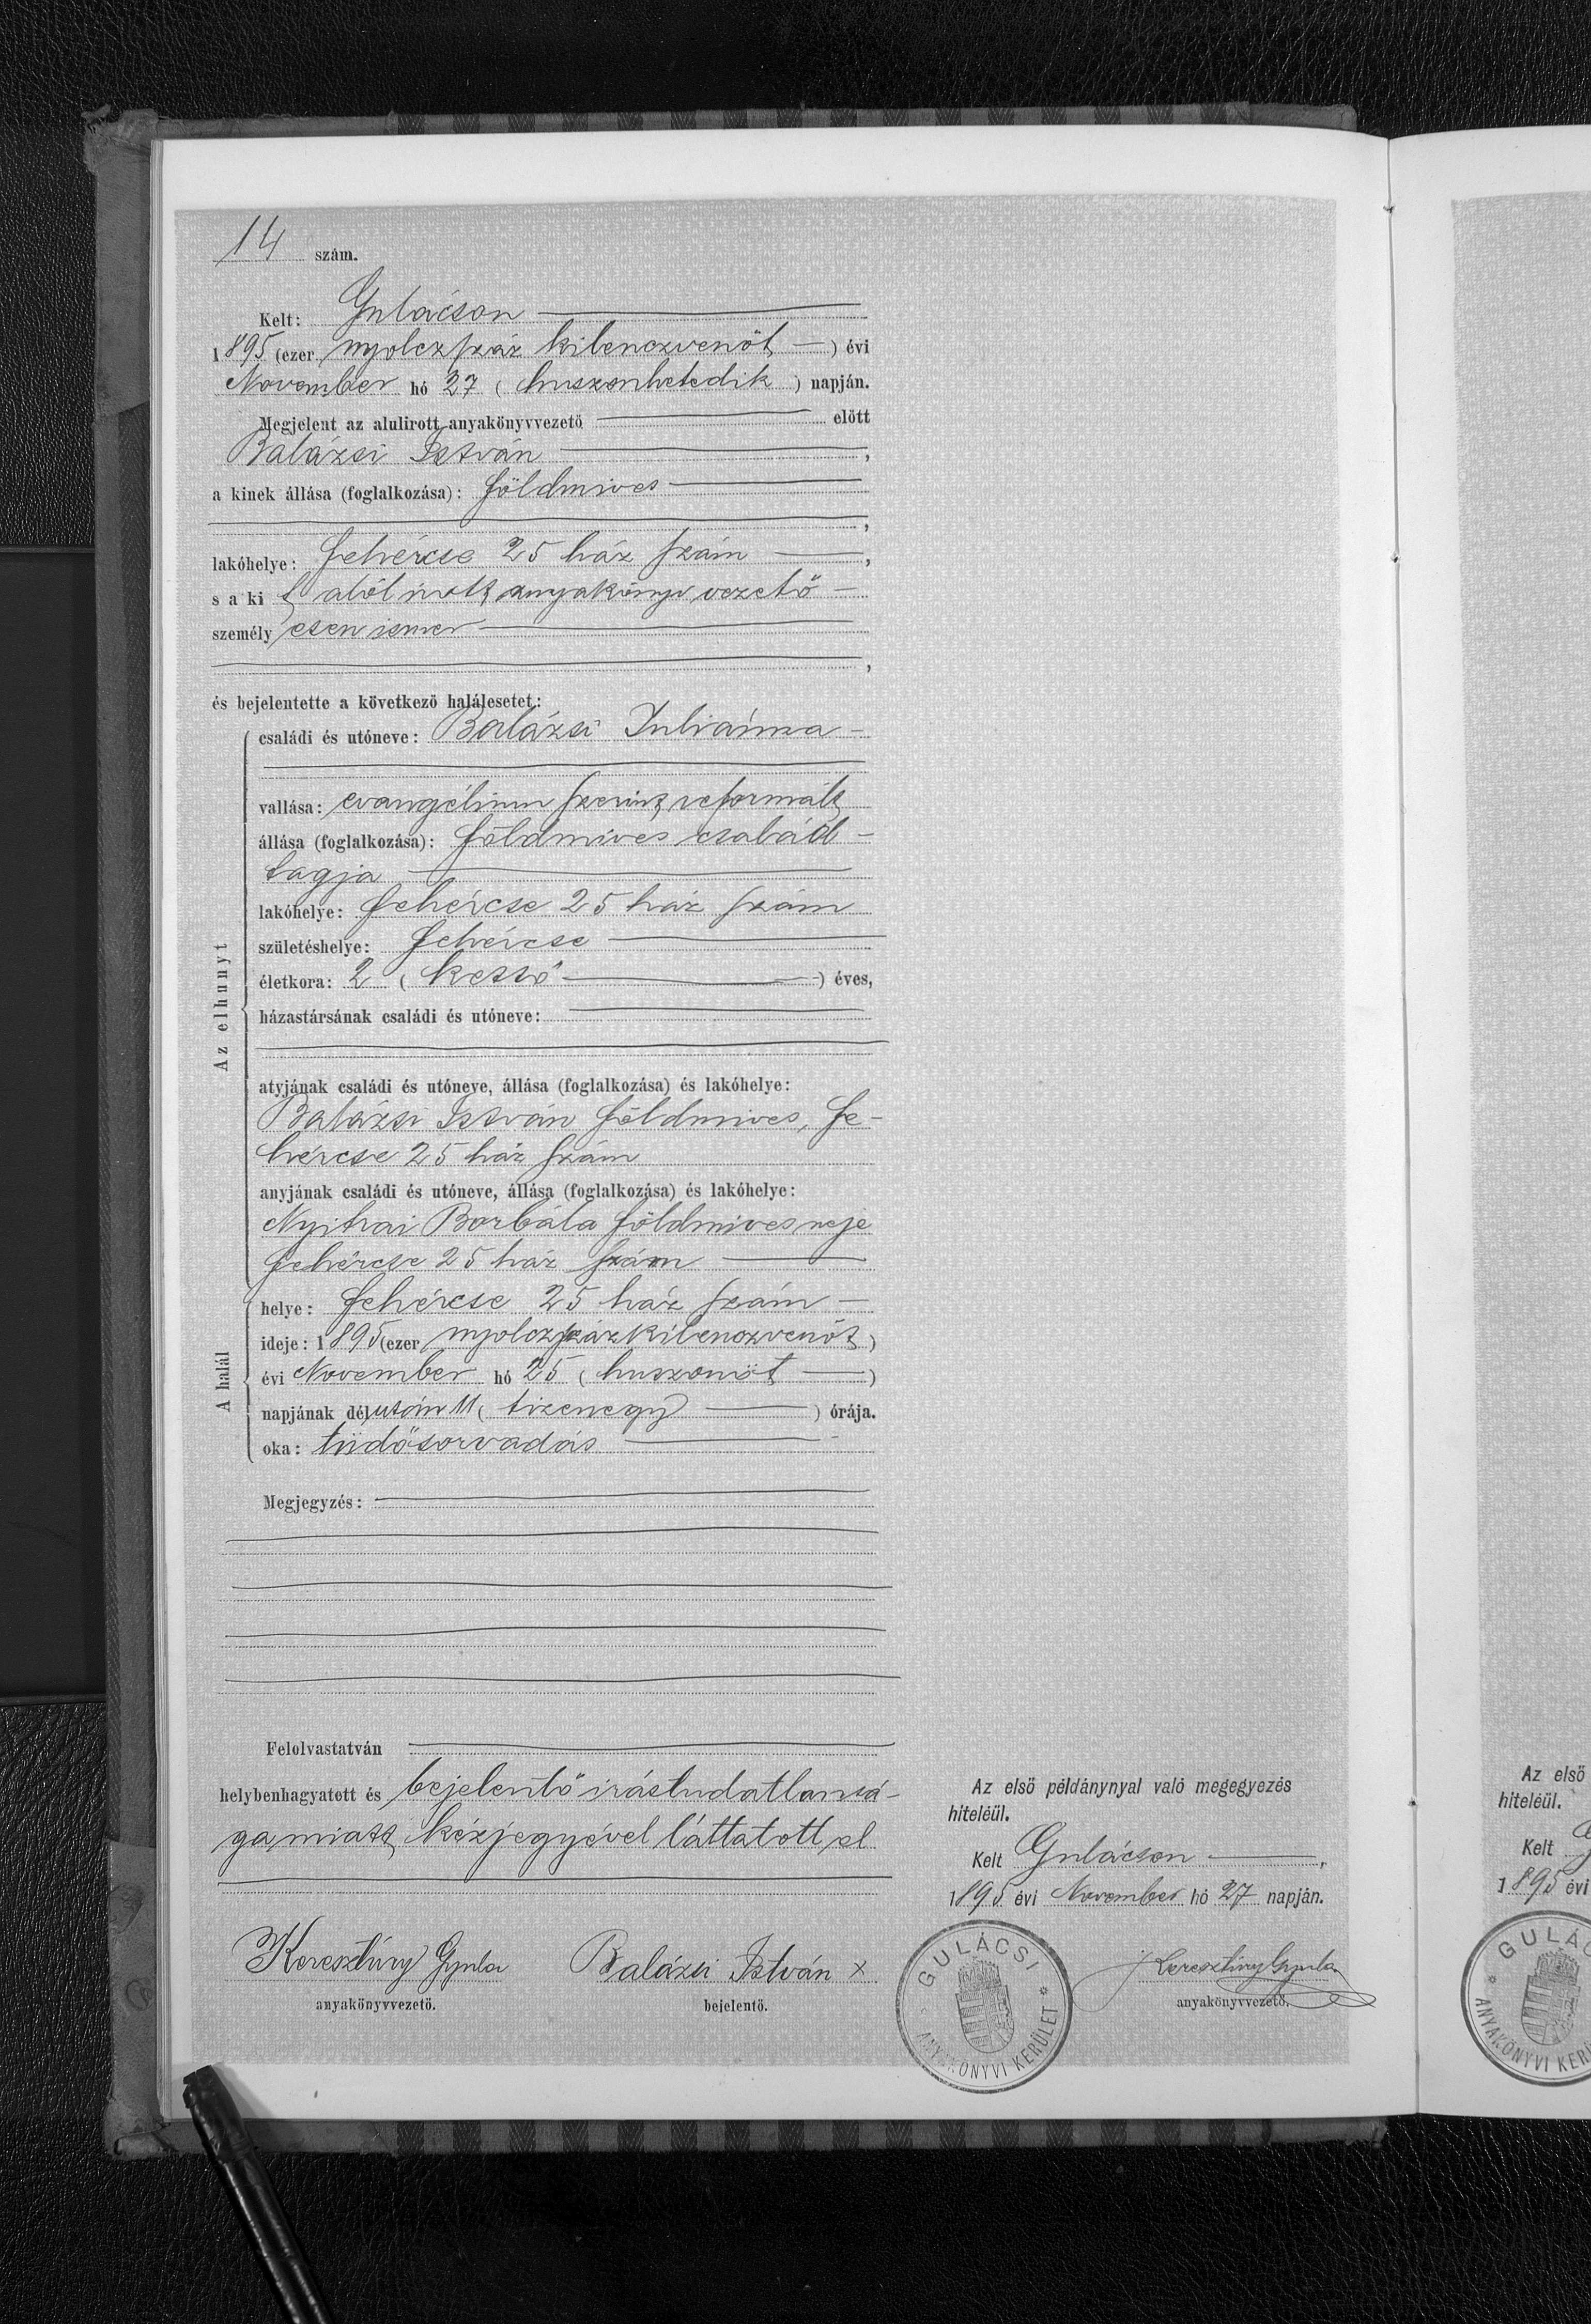 14 szám.
Kelt: Gulácson
1895 (ezer nyolczszáz kilenczvenöt) évi
November hó 27 (huszonhetedik) napján.
Megjelent az alulirott anyakönyvvezető előtt
Balázsi István,
a kinek állása (foglalkozása): földmives
,
lakóhelye: fehércse 25 ház szám,
s a ki t alól irott anyakönyv vezető
személy esen ismer
,
és bejelentette a következő halálesetet:
Az elhunyt
családi és utóneve: Balázsi Juliánna
vallása: evangélium szerint reformált
állása (foglalkozása): földmives család
tagja
lakóhelye: fehércse 25 ház szám
születéshelye: fehércse
életkora: 2 (kettő) éves,
házastársának családi és utóneve:
atyjának családi és utóneve, állása (foglalkozása) és lakóhelye:
Balázsi István földmives, fe-
hércse 25 ház szám
anyjának családi és utóneve, állása (foglalkozása) és lakóhelye:
Nyitrai Borbála földmives neje
fehércse 25 ház szám
A halál
helye: fehércse 25 ház szám
ideje: 1895 (ezer nyolczszázkilenczvenöt)
évi November hó 25 (huszonöt)
napjának délután 11 (tizenegy) órája.
oka: tüdősorvadás
Megjegyzés:
Felolvastatván
helybenhagyatott és bejelentő irástudatlansá-
ga miatt kézjegyével láttatott el
Keresztúry Gyula
anyakönyvvezető.
Balázsi István x
bejelentő.
Az első példánynyal való megegyezés
hiteléül.
Kelt Gulácson,
1895 évi November hó 27 napján.
GULÁCSI
ANYAKÖNYVI KERÜLET
Keresztúry Gyula
anyakönyvvezető.
Az első
hiteléül.
Kelt
1895 évi
GULÁC
ANYAKÖNYVI KERÜ